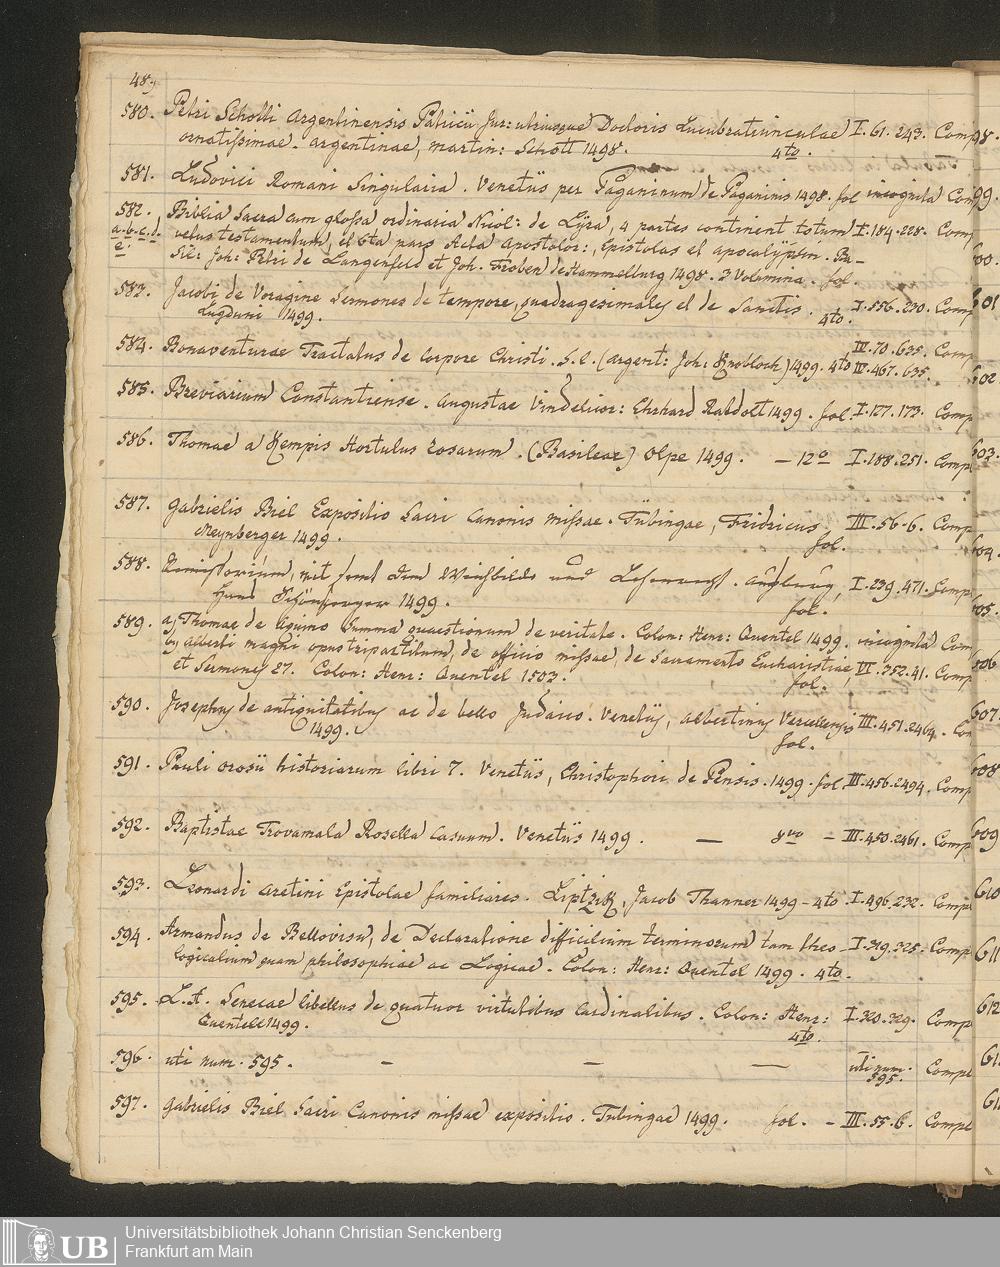 48.
580. Petri Schotti Argentinensis Patricii Jur: utriusque Doctoris Lucubratiunculae I. 61. 243. Comp
ornatissimae. Argentinae, Martin: Schott 1498. 4to.
581. Ludovici Romani Singularia. Venetiis per Paganinum de Paganinis 1498. fol incognita Com
582. Biblia Sacra cum glossa ordinaria Nicol: de Lyra, 4 partes continent totum I. 184. 228. Comp
a. b. c. d. vetus testamentum, et 6ta pars Acta Apostolor: Epistolas et apocalypsin. Ba-
e. sil: Joh: Petri de Langenfeld et Joh. Froben de Hammelburg 1498. 3 Volumina. fol
583. Jacobi de Voragine Sermones de tempore, quadragesimales et de Sanctis. 4to. I. 556. 230. Comp
Lugduni 1499.
584. Bonaventurae Tractatus de Corpore Christi. S. l. (Argent: Joh: Knobloch) 1499. 4to IV. 70. 635. Comp
IV. 467. 635.
585. Breviarium Constantiense. Augustae Vindelicor: Ehrhard Ratdolt 1499. fol I. 127. 173. Comp
586. Thomae a Kempis Hortulus rosarum. (Basileae) Olpe 1499. — 12o I. 188. 251. Comp
587. Gabrielis Biel Expositio Sacri Canonis missae. Tubingae, Fridricus III. 56. 6. Comp
Meynberger 1499. fol.
588. mit sampt dem Weichbilde und Lehenrecht. Augburg, I. 239. 471. Comp
Hans Schönsperger 1499. fol.
589. a, Thomae de Aquino Summa quaestionum de veritate. Colon: Henr: Quentel 1499. incognita Com
b, Alberti magni opus tripartitum, de officio missae, de Sacramento Eucharistiae, VI. 352. 41. Comp
et Sermones 27. Colon: Henr: Quentel 1503. fol.
590. Josephus de antiquitatibus ac de bello Judaico. Venetiis, Albertinus Vercellensis III. 451. 2464. Co
1499. fol.
591. Pauli Orosii historiarum libri 7. Venetiis, Christophori de Pensis. 1499. fol III. 456. 2494. Comp
592. Baptistae Trovamala Rosella casuum. Venetiis 1499. — 8vo — III. 450. 2461. Comp
593. Leonardi Aretini Epistolae familiares. Liptzik, Jacob Thanner 1499 — 4to I. 496. 232. Comp
594. Armandus de Bellovisu, de Declaratione difficilium terminorum tam theo- I. 319. 325. Comp
logicalium quam philosophiae ac Logicae. Colon: Henr: Quentel 1499. 4to.
595. L. A. Senecae libellus de quatuor virtutibus Cardinalibus. Colon: Henr: I. 320. 329. Comp
Quentell 1499. 4to.
596. uti num. 595. — — — uti num. 595. Comple
597. Gabrielis Biel Sacri Canonis missae expositio. Tubingae 1499. fol. — III. 55. 6. Compl
98.
99.
00.
601
602
603.
604.
605.
606
607.
608
609
610
611
612
61
61
UB
Universitätsbibliothek Johann Christian Senckenberg
Frankfurt am Main